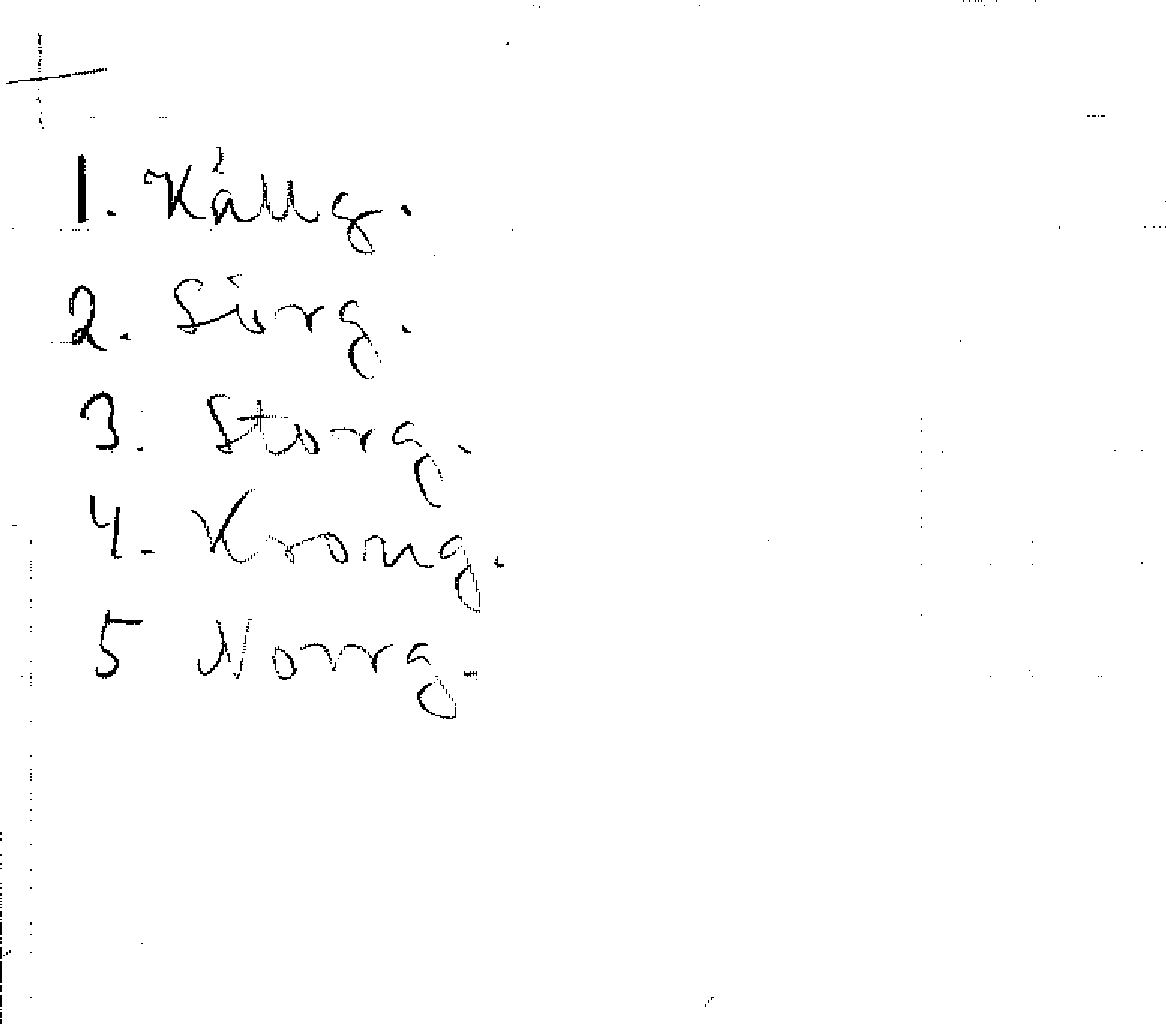 1. Källg.
2. Sörg.
3. Storg.
4. Krong.
5 Norrg.